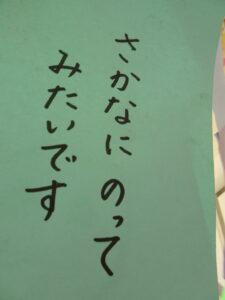 さかなに のって
みたいです